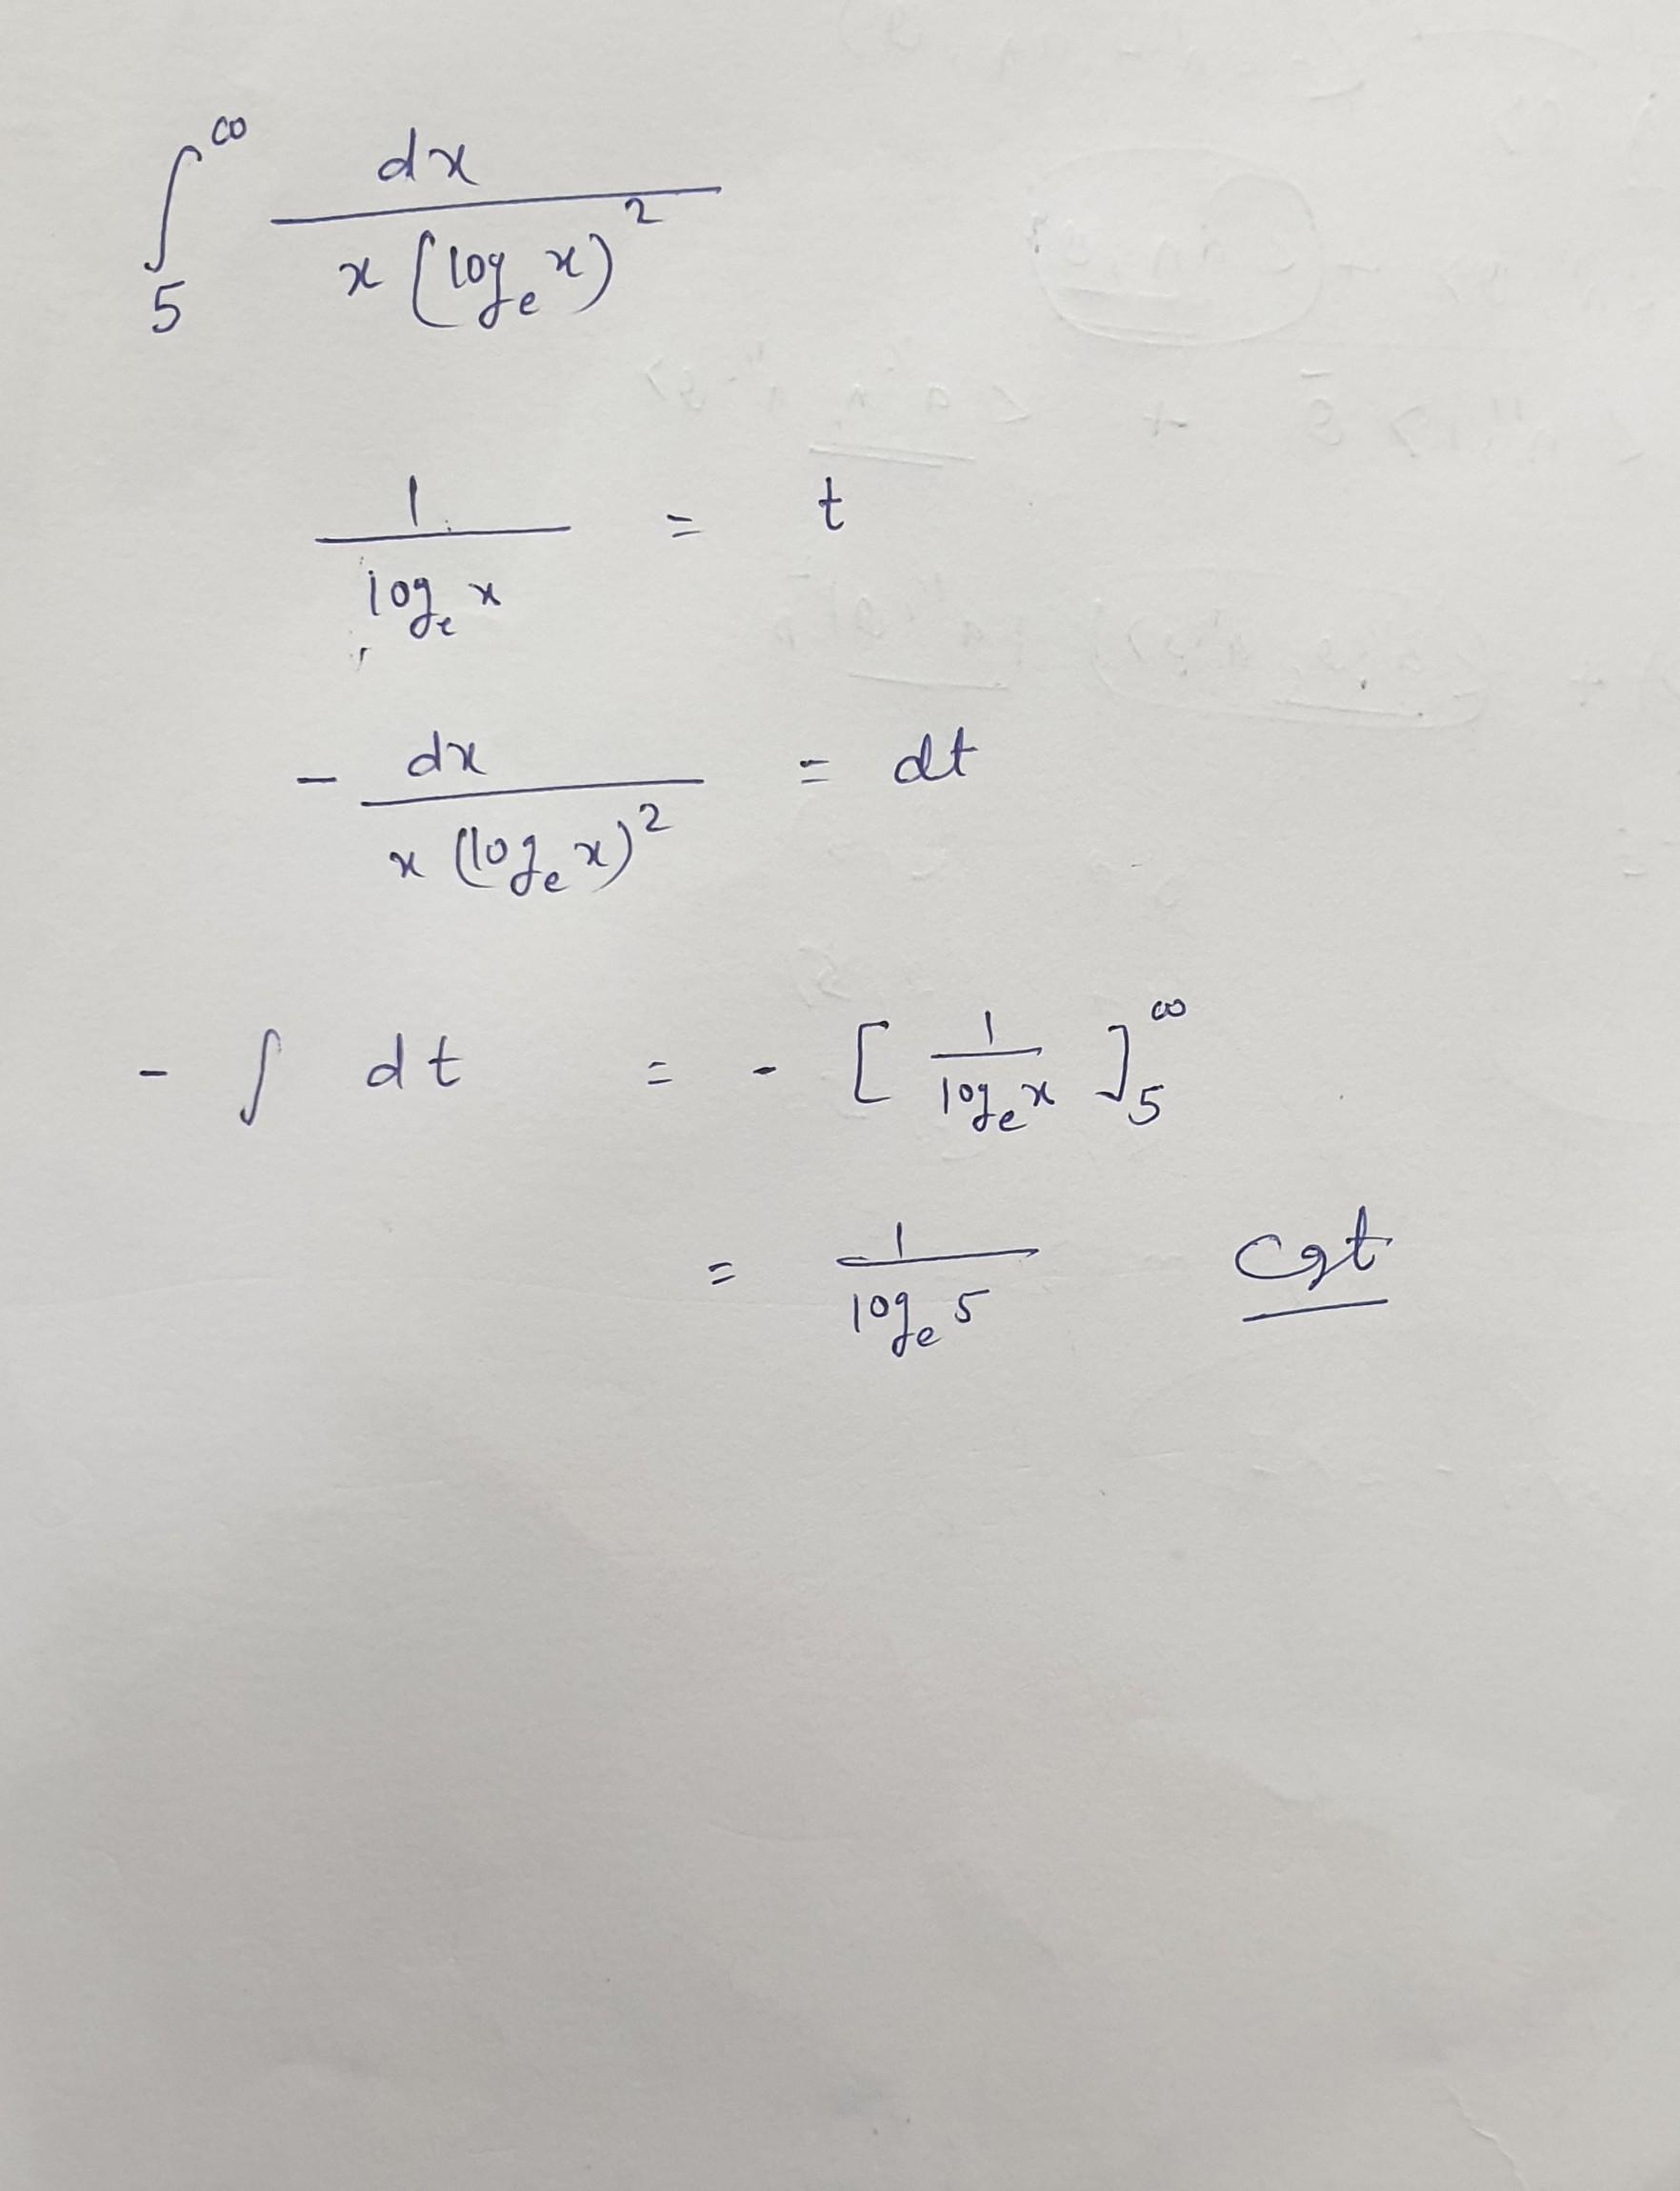 ∫₅^∞ dx / x (logₑ x)²
1 / logₑ x = t
- dx / x (logₑ x)² = dt
- ∫ dt = - [ 1 / logₑ x ]₅^∞
= 1 / logₑ 5 Cgt